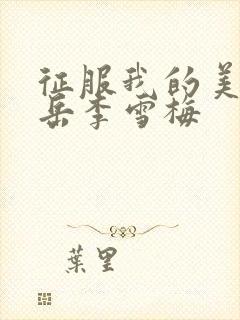 征服我的美
岳李雪梅
葉里